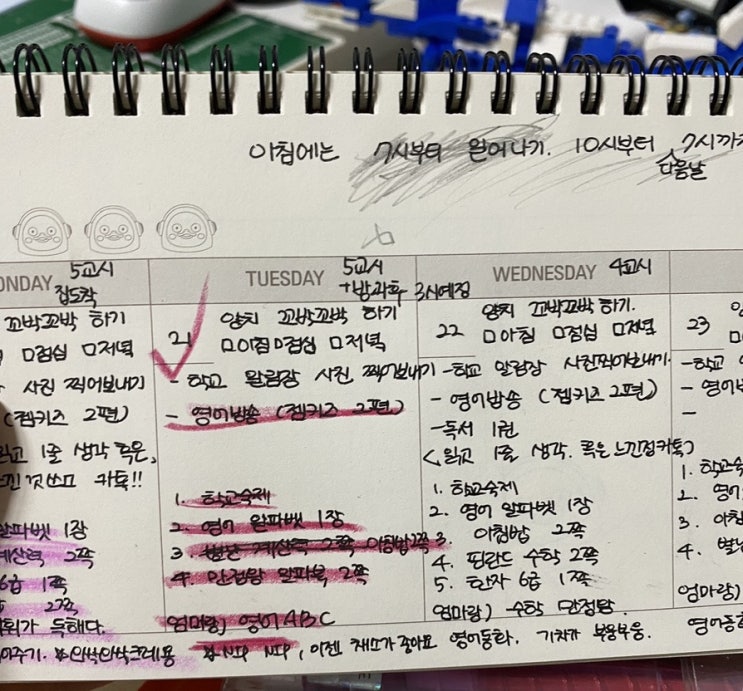 아침에는 7시부터 일어나기. 10시부터 7시까지
다음날
ONDAY 5교시
집도착
꼬박꼬박 하기
□점심 □저녁
사진 찍어보내기
(젬키즈 2편)
읽고 1줄 생각 혹은,
카톡!!
알파벳 1장
계산력 2쪽
6급 1쪽
2쪽
독해다.
TUESDAY 5교시
+방과후 3시예정
21 양치 꼬박꼬박 하기
□아침 □점심 □저녁
- 학교 알림장 사진 찍어보내기
- 영어방송 (젬키즈 2편)
1. 학교숙제
2. 영어 알파벳 1장
3. 계산력 2쪽 아침밥 2쪽
4. 만점왕 알파북 2쪽
엄마랑) 영어 ABC
WEDNESDAY 4교시
22 양치 꼬박꼬박 하기.
□아침 □점심 □저녁
- 학교 알림장 사진찍어보내기.
- 영어방송 (젬키즈 2편)
- 독서 1권
<읽고 1줄 생각. 혹은 느낀점카톡>
1. 학교숙제
2. 영어 알파벳 1장
3. 아침밥 2쪽
4. 핀란드 수학 2쪽
5. 한자 6급 1쪽
엄마랑) 수학 만점왕.
NIP NIP, 이젠 채소가 좋아요 영어동화. 기차가 부웅부웅.
23
- 학교
- 영어방
-
1. 학교숙
2. 영어
3. 아침
4.
엄마랑)
영어동화